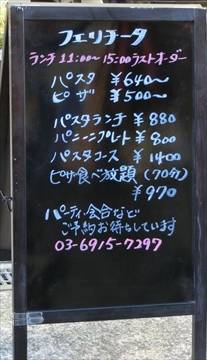 フェリチータ
ランチ 11:00〜15:00ラストオーダー
パスタ ¥640〜
ピザ ¥500〜
パスタランチ ¥880
パニーニプレト ¥800
パスタコース ¥1400
ピザ食べ放題(70分)
¥970
パーティ、会合など
ご予約お待ちしています
03-6915-7297